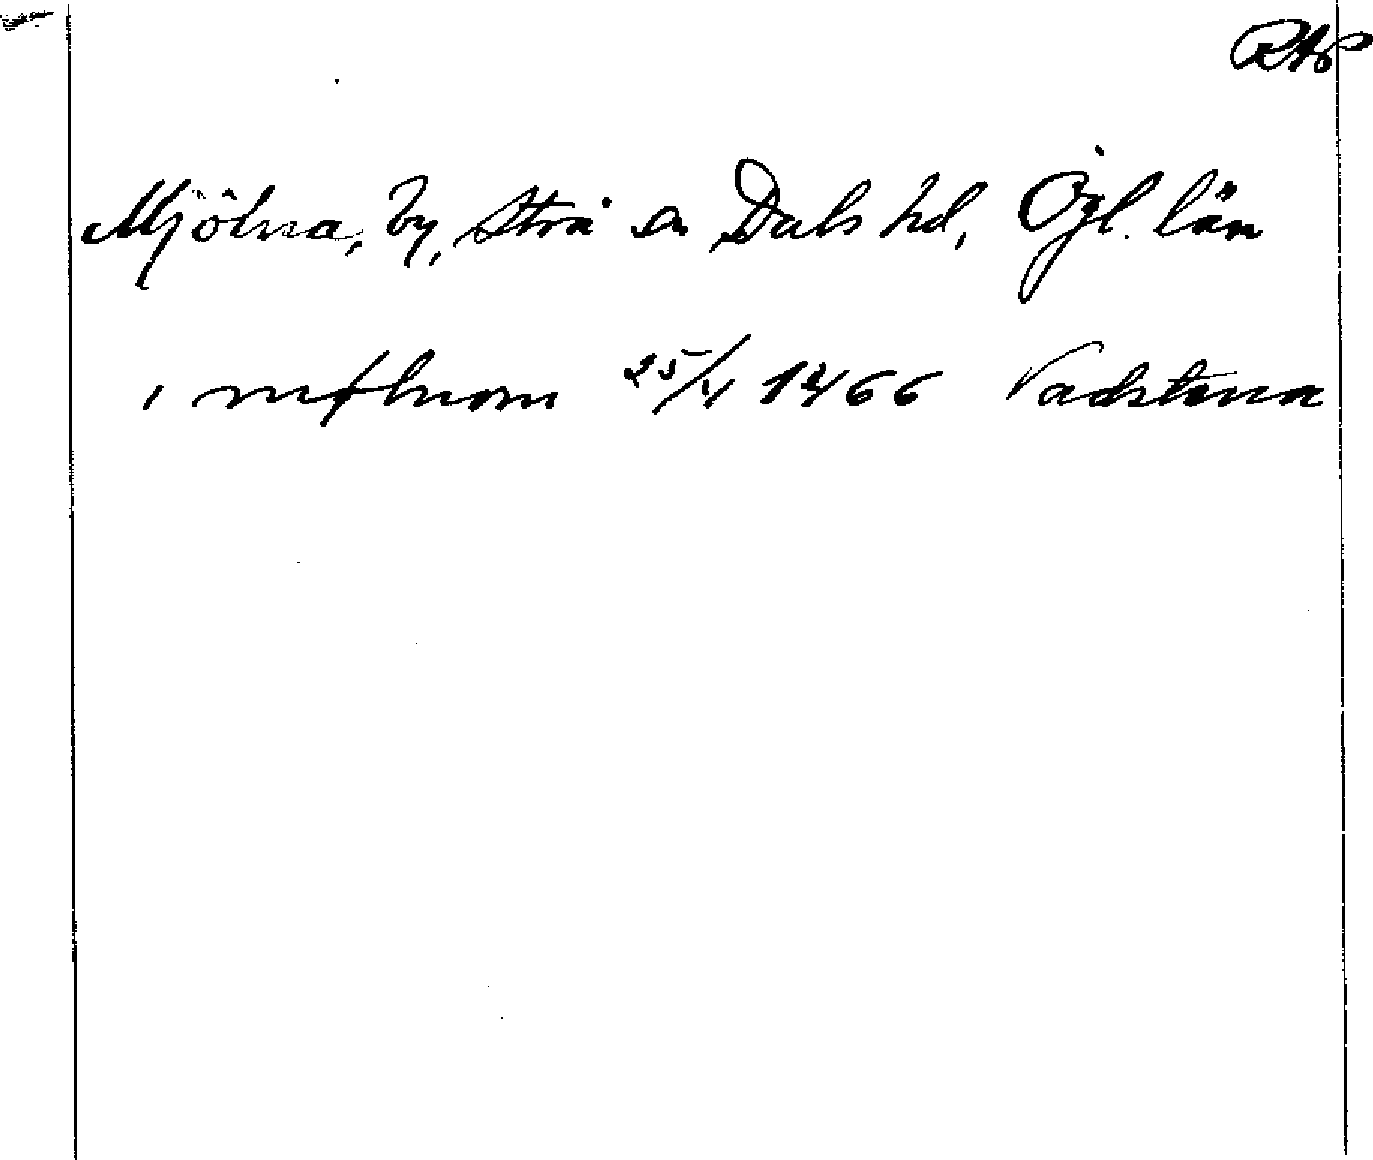 RAP
Mjölna, by, Strå sn Dals hd, Ögl. län
i mølnom 25/4 1466 Vadstena